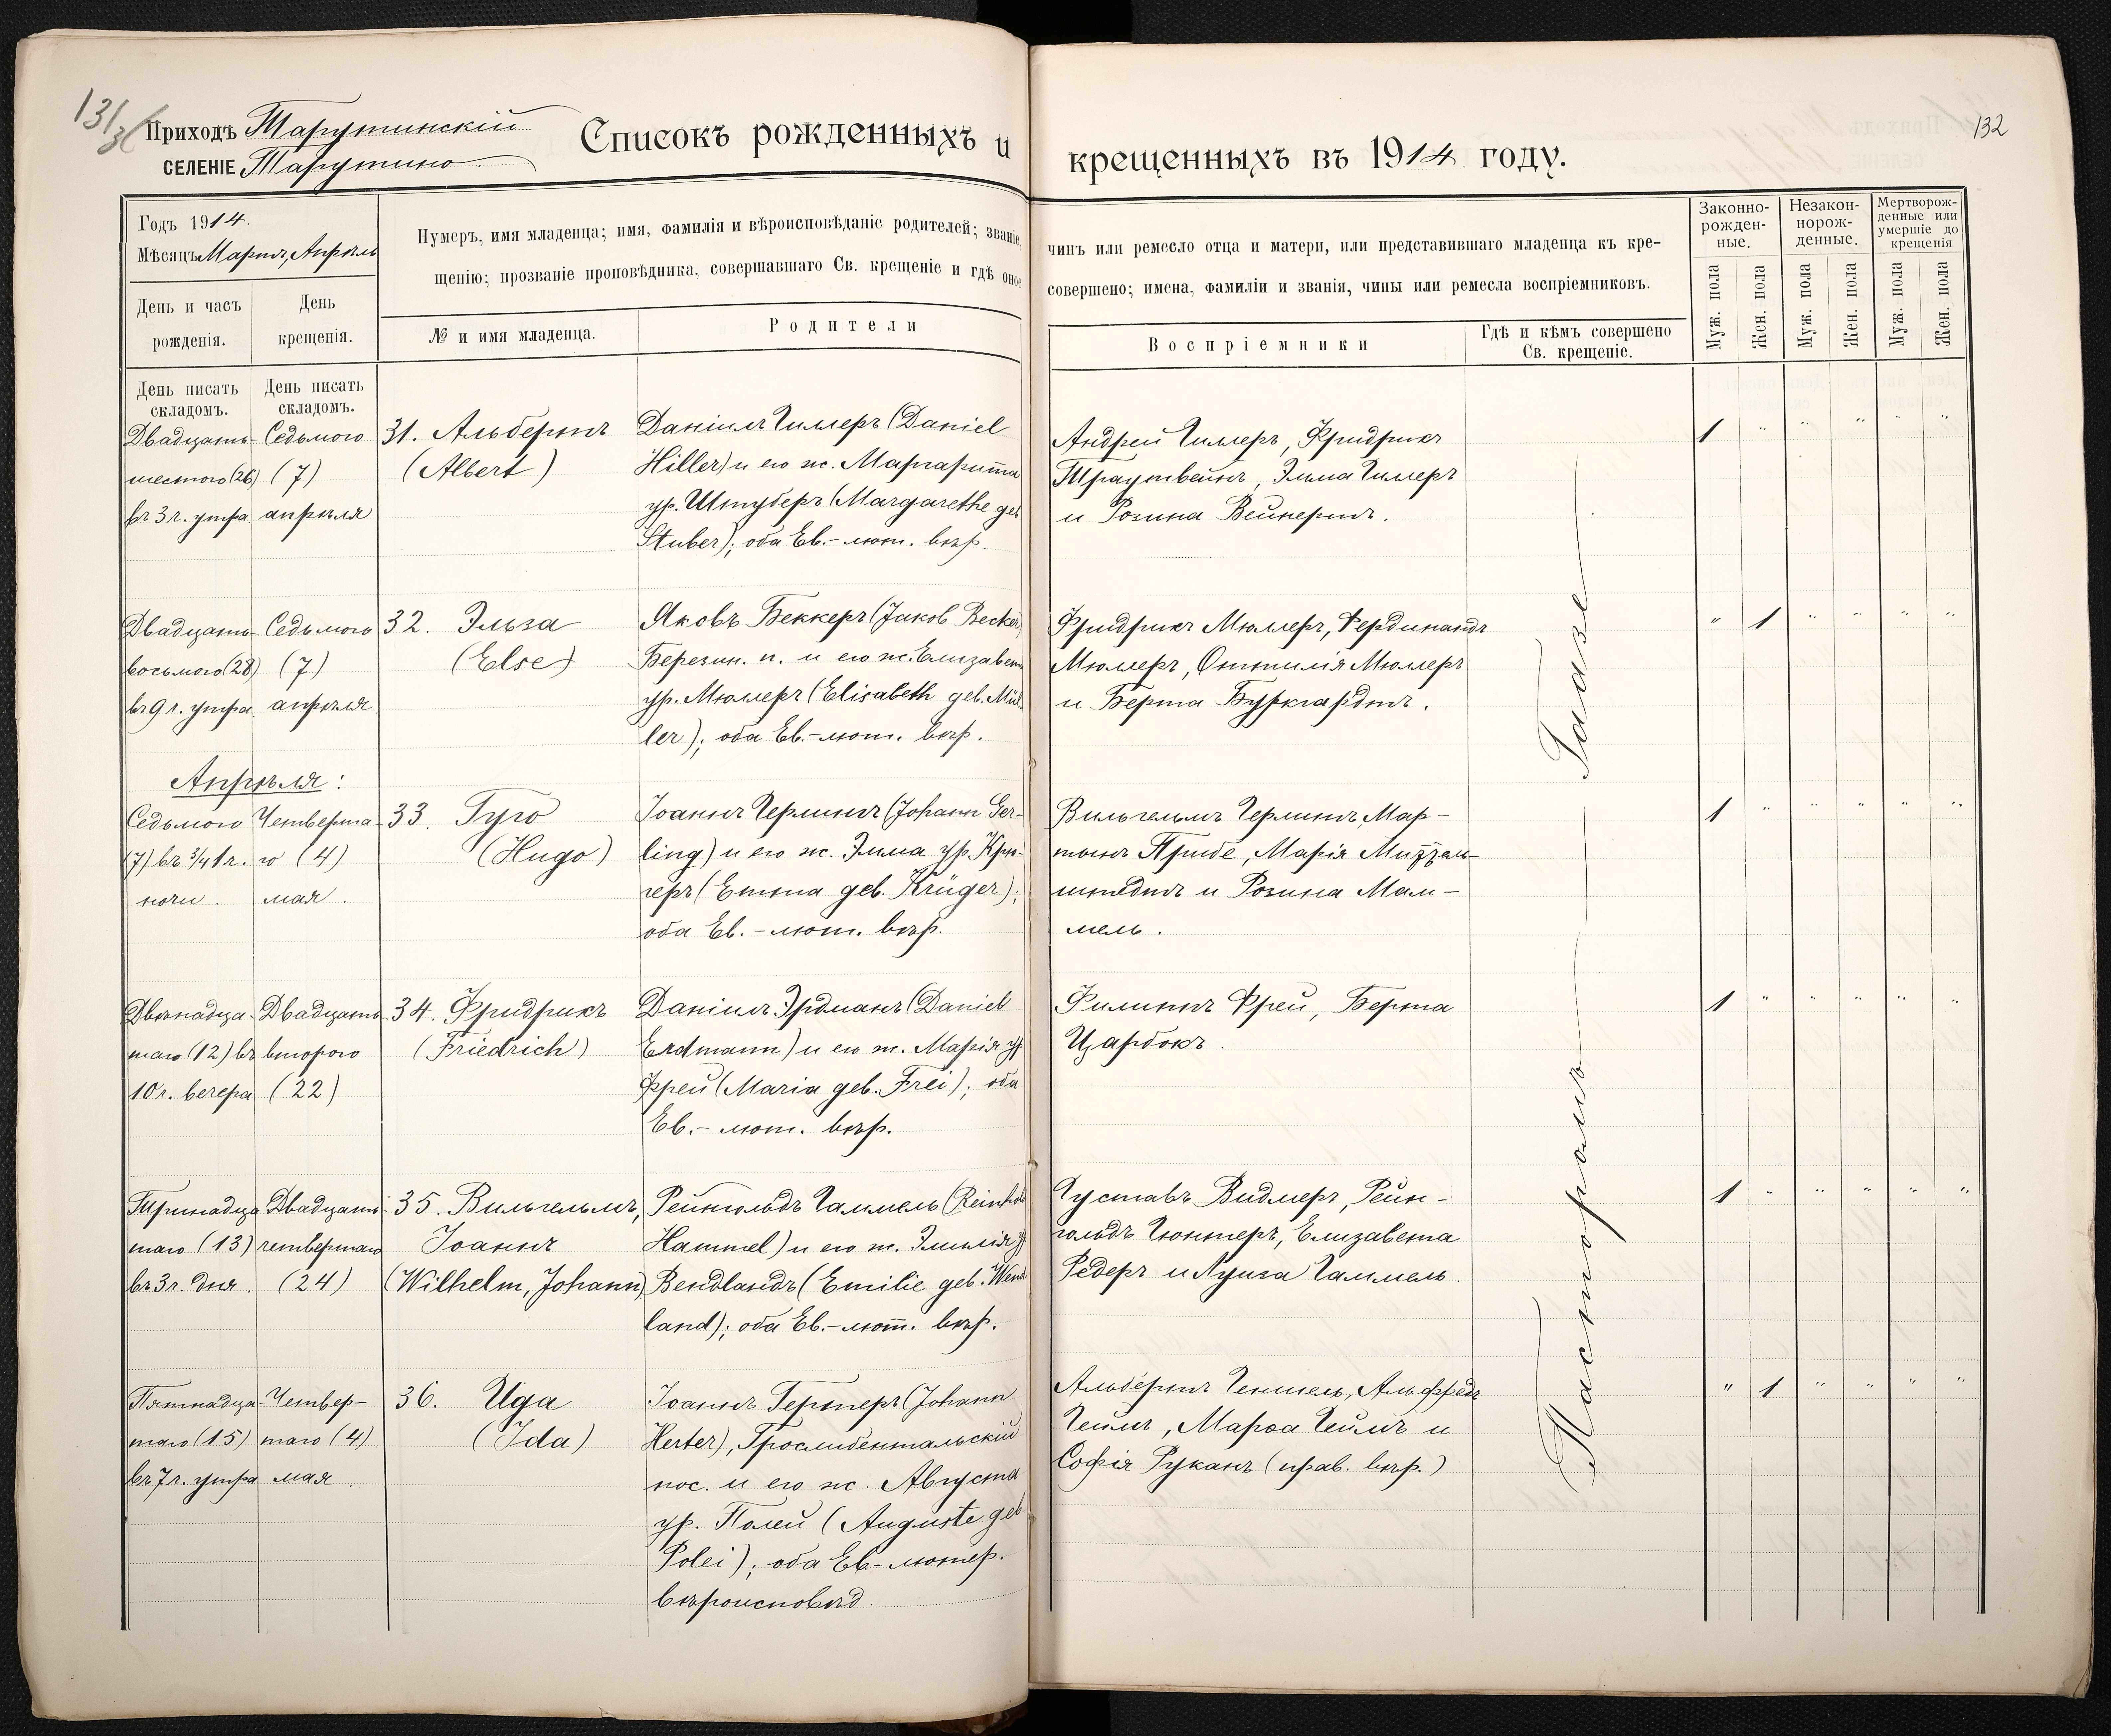 131/36
132
Приходъ Тарутинскій
СЕЛЕНІЕ Тарутино
Списокъ рожденныхъ и крещенныхъ въ 1914 году.
Годъ 1914.
Мѣсяцъ Мартъ, Апрѣль
День и часъ рожденія.
День крещенія.
Нумеръ, имя младенца; имя, фамилія и вѣроисповѣданіе родителей; званіе, чинъ или ремесло отца и матери, или представившаго младенца къ кре-
щенію; прозваніе проповѣдника, совершавшаго Св. крещеніе и гдѣ оное совершено; имена, фамиліи и званія, чины или ремесла воспріемниковъ.
№ и имя младенца.
Родители
Воспріемники
Гдѣ и кѣмъ совершено
Св. крещеніе.
Законно-
рожден-
ные.
Незакон-
норож-
денные.
Мертворож-
денные или
умершіе до
крещенія
Муж. пола
Жен. пола
Муж. пола
Жен. пола
Муж. пола
Жен. пола
День писать
складомъ.
День писать
складомъ.
Двадцать-
шестого (26)
въ 3 ч. утра
Седьмого
(7)
апрѣля
31. Альбертъ
(Albert)
Даніилъ Гиллеръ (Daniel
Hiller) и его ж. Маргарита
ур. Штуберъ (Margarethe geb.
Stuber); оба Ев.-лют. вѣр.
Андрей Гиллеръ, Фридрихъ
Траутвейнъ, Эмма Гиллеръ
и Розина Вейнертъ.
1 " " " " "
Двадцать-
восьмого (28)
въ 9 ч. утра
Седьмого
(7)
апрѣля
32. Эльза
(Else)
Яковъ Беккеръ (Jakob Becker)
Березин. п. и его ж. Елизавета
ур. Мюллеръ (Elisabeth geb. Mül-
ler); оба Ев.-лют. вѣр.
Фридрихъ Мюллеръ, Фердинандъ
Мюллеръ, Оттилія Мюллеръ
и Берта Буркгардтъ.
" 1 " " " "
Апрѣля:
Седьмого
(7) въ 3/4 1 ч.
ночи.
Четверта-
го (4)
мая.
33. Гуго
(Hugo)
Іоаннъ Герлингъ (Johann Ger-
ling) и его ж. Эмма ур. Крю-
геръ (Emma geb. Krüger);
оба Ев.-лют. вѣр.
Вильгельмъ Герлингъ, Мар-
тынъ Прибе, Марія Миттель-
штедтъ и Розина Мам-
мель.
1 " " " " "
Двѣнадца-
таго (12) въ
10 ч. вечера
Двадцать-
второго
(22)
34. Фридрихъ
(Friedrich)
Даніилъ Эрдманъ (Daniel
Erdmann) и его ж. Марія ур.
Фрей (Maria geb. Frei); оба
Ев.-лют. вѣр.
Филиппъ Фрей, Берта
Царбокъ.
1 " " " " "
Тринадца
таго (13)
въ 3 ч. дня.
Двадцать-
четвертаго
(24)
35. Вильгельмъ,
Іоаннъ
(Wilhelm, Johann)
Рейнгольдъ Гаммель (Reinhold
Hammel) и его ж. Эмилія ур.
Вендландъ (Emilie geb. Wend-
land); оба Ев.-лют. вѣр.
Густавъ Видмеръ, Рейн-
гольдъ Гюнтеръ, Елизавета
Редеръ и Луиза Гаммель.
1 " " " " "
Пятнадца-
таго (15)
въ 7 ч. утра
Четвер-
таго (4)
мая.
36. Ида
(Ida)
Іоаннъ Гертеръ (Johann
Herter), Гросслибентальскій
пос. и его ж. Августа
ур. Полей (Auguste geb.
Polei); оба Ев-лютер.
вѣроисповѣд.
Альбертъ Геншель, Альфредъ
Геймъ, Марѳа Геймъ и
Софія Руканъ (прав. вѣр.)
" 1 " " " "
Пасторомъ — Гаазе